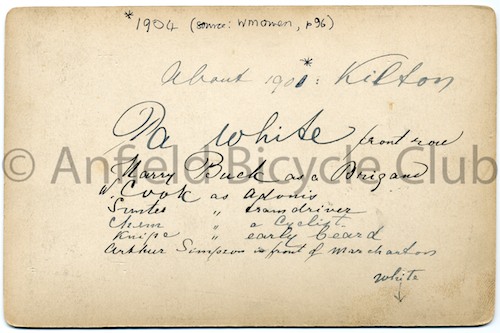 *1904 (source: WMOwen, p96)
About 1901*: Kilton
Pa White front row
Harry Buck as a Brigand
" Cook as Adonis
" tramdriver
Chem " a Cyclist.
Knipe " early beard
Arthur Simpson in front of Marcharton
White
© Anfield Bicycle Club